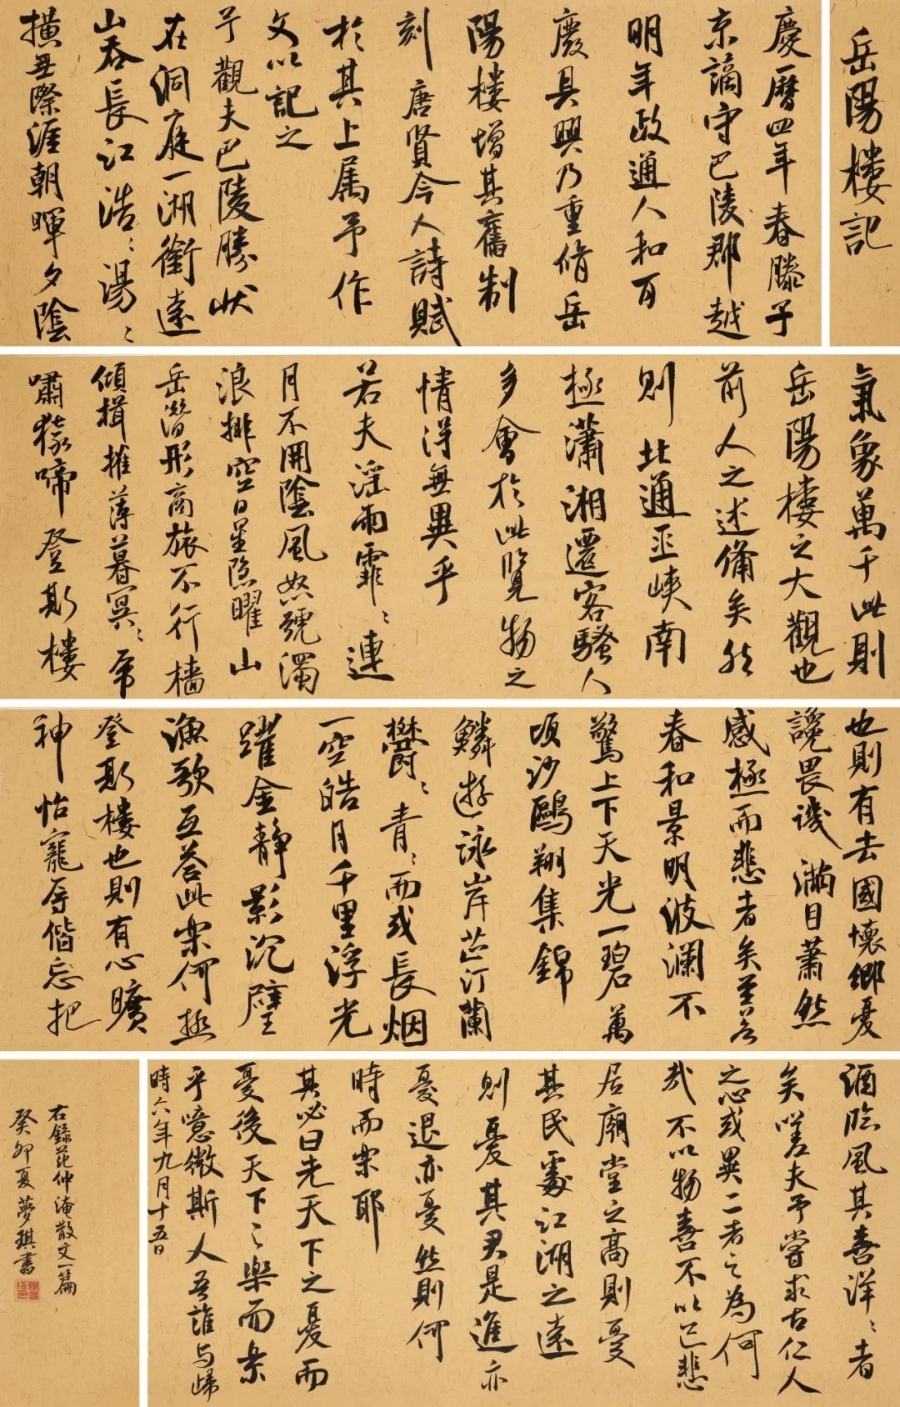 岳陽楼記
慶曆四年春滕子
京謫守巴陵郡越
明年政通人和百
廢具興乃重脩岳
陽楼增其舊制
刻唐賢今人詩賦
於其上属予作
文以記之
予觀夫巴陵勝狀
在洞庭一湖銜遠
山吞長江浩〻湯〻
橫無際涯朝暉夕陰
氣象萬千此則
岳陽樓之大觀也
前人之述備矣然
則北通巫峽南
極瀟湘遷客騷人
多會於此覽物之
情得無異乎
若夫淫雨霏〻連
月不開陰風怒號濁
浪排空日星隱曜山
岳潛形商旅不行檣
傾楫摧薄暮冥〻虎
嘯猿啼登斯樓
也則有去國懷鄉憂
讒畏譏滿目蕭然
感極而悲者矣至若
春和景明波瀾不
驚上下天光一碧萬
頃沙鷗翔集錦
鱗游泳岸芷汀蘭
欝〻青〻而或長烟
一空皓月千里浮光
躍金静影沉璧
漁歌互答此樂何極
登斯樓也則有心曠
神怡寵辱偕忘把
酒臨風其喜洋〻者
矣嗟夫予嘗求古仁人
之心或異二者之為何
哉不以物喜不以己悲
居廟堂之高則憂
其民處江湖之遠
則憂其君是進亦
憂退亦憂然則何
時而樂耶
其必曰先天下之憂而
憂後天下之樂而樂
乎噫微斯人吾誰与歸
時六年九月十五日
右錄范仲淹散文一篇
癸卯夏夢琪書